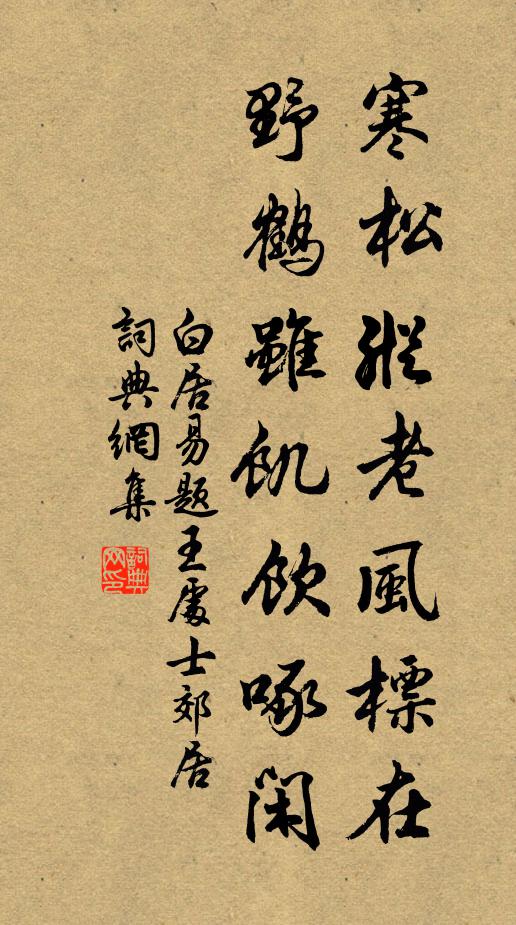 寒松縱老風標在
野鶴雖飢飲啄閑
白居易題王處士郊居
詞典網集
詞典
网印